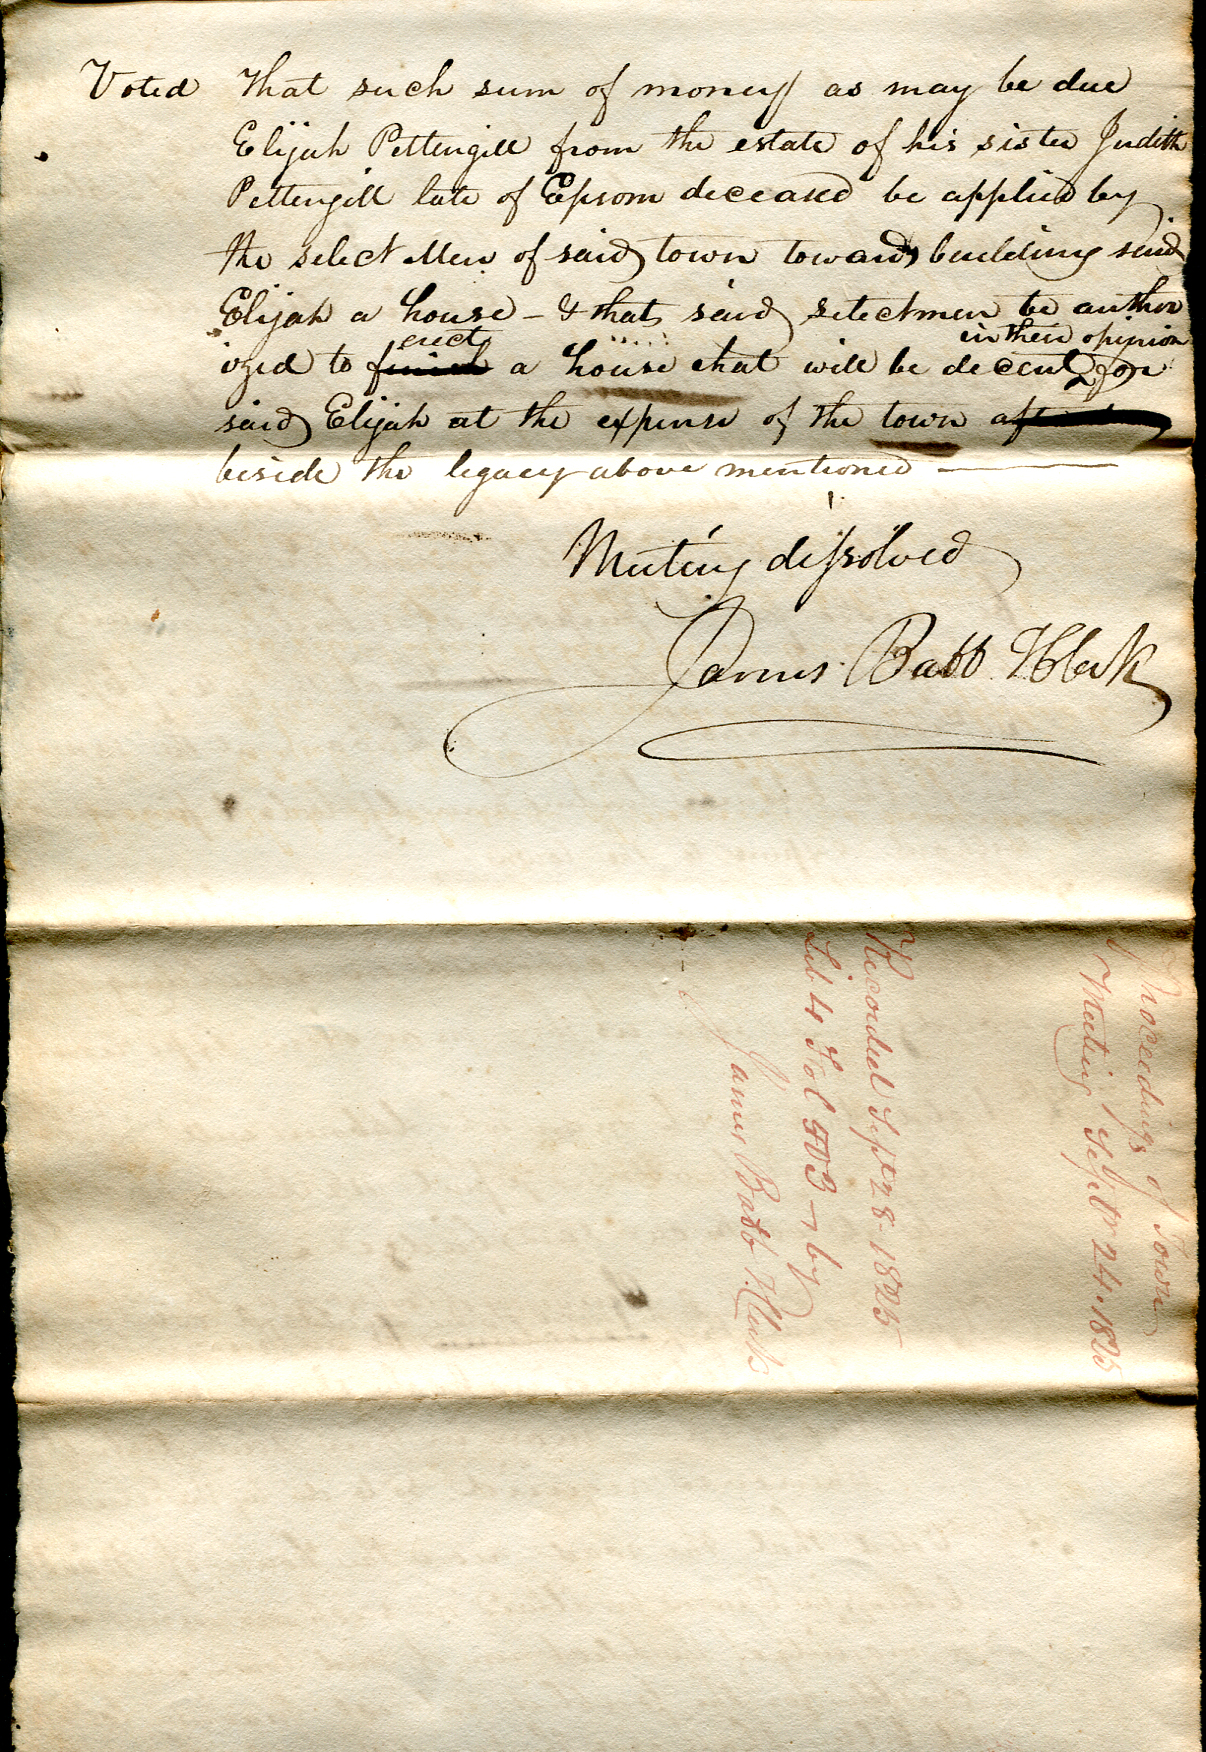 Voted that such sum of money as may be due
Elijah Pettengill from the estate of his sister Judith
Pettengill late of Epsom deceased be applied by
the select Men of said town towards building said
Elijah a house - & that said selectmen be author
erect in their opinion
ized to finish a house that will be decent for
said Elijah at the expense of the town
beside the legacy above mentioned
Meeting dissolved
James Babb T Clerk
Proceedings of Town
Meeting Septr 24. 1825
Recorded Sept 28 - 1825
Lib 4 Fol 503 - by
James Babb T. Clerk